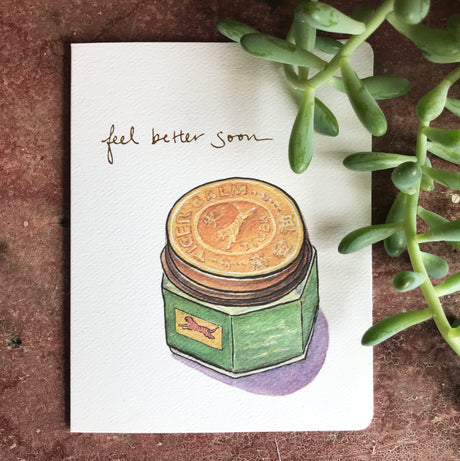 feel better soon
TIGER BALM
TIGER